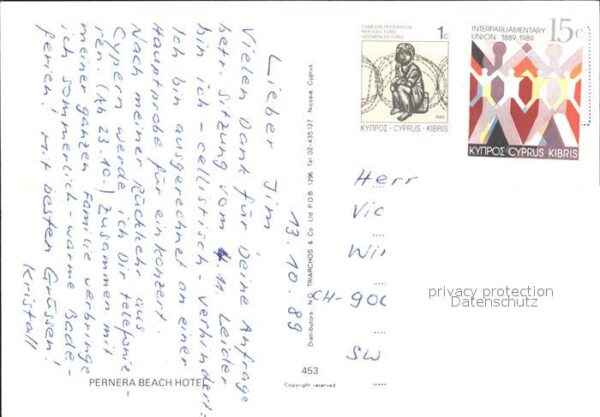 Lieber Jim
13.10.89
Vielen Dank für Deine Anfrage
betr. Sitzung vom 4.11. Leider
bin ich - cellistisch - verhindert:
Ich bin ausgerechnet an einer
Hauptprobe für ein Konzert.
Nach meiner Rückkehr aus
Cypern werde ich Dir telefonie-
ren. (Ab 23.10.) Zusammen mit
meiner ganzen Familie verbringe
ich sommerlich-warme Bade-
ferien! Mit besten Grüssen!
Kristall
PERNERA BEACH HOTEL
Distributors: N.G. TRIARCHOS & Co. Ltd P.O.B. 1296, Tel. 02-435137 Nicosia, Cyprus
453
Copyright reserved
1c
REFUGEE FUND
1989
ΚΥΠΡΟΣ·CYPRUS·KIBRIS
INTERPARLIAMENTARY
UNION 1889-1989
15c
ΚΥΠΡΟΣ CYPRUS KIBRIS
Herr
Vic
Wi
CH-900
SW
privacy protection
Datenschutz